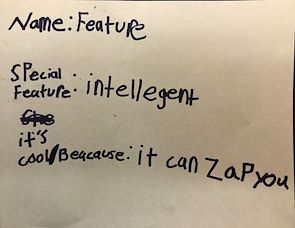 Name: Feature
Special
Feature: intellegent
She
it's
cool/Beacause: it can Zap you